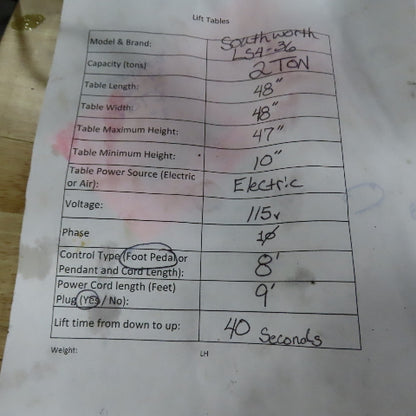 Lift Tables
Model & Brand: Southworth
LS4-36
Capacity (tons) 2 TON
Table Length: 48"
Table Width: 48"
Table Maximum Height: 47"
Table Minimum Height: 10"
Table Power Source (Electric
or Air): Electric
Voltage: 115v
Phase 1ø
Control Type (Foot Pedal or
Pendant and Cord Length): 8'
Power Cord length (Feet)
Plug (YES / No): 9'
Lift time from down to up: 40 Seconds
Weight: LH